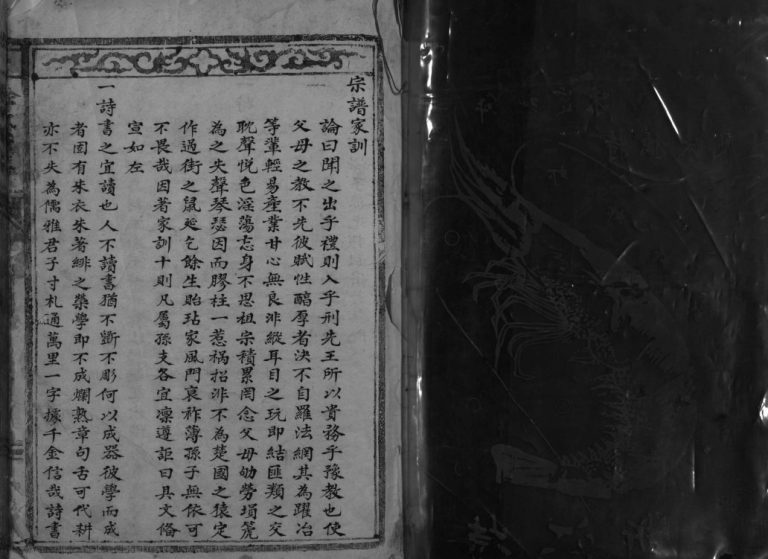 宗譜家訓
論曰聞之出乎禮則入乎刑先王所以貴務乎豫教也使
父母之教不先彼賦性醇厚者決不自羅法網其為躍冶
等輩輕易產業甘心無良淫縱耳目之玩即結匪類之交
耽聲悅色淫蕩志身不思祖宗積累罔念父母劬勞塤箎
為之失聲琴瑟因而膠柱一惹禍招非不為楚國之猿定
作過街之鼠延乞餘生貽玷家風門衰祚薄孫子無依可
不畏哉因著家訓十則凡屬孫支各宜凜遵詎曰具文脩
宣如左
一詩書之宜讀也人不讀書猶不斲不彫何以成器彼學而成
者固有朱衣朱著緋之榮學即不成爛熟章句舌可代耕
亦不失為儒雅君子寸札通萬里一字據千金信哉詩書